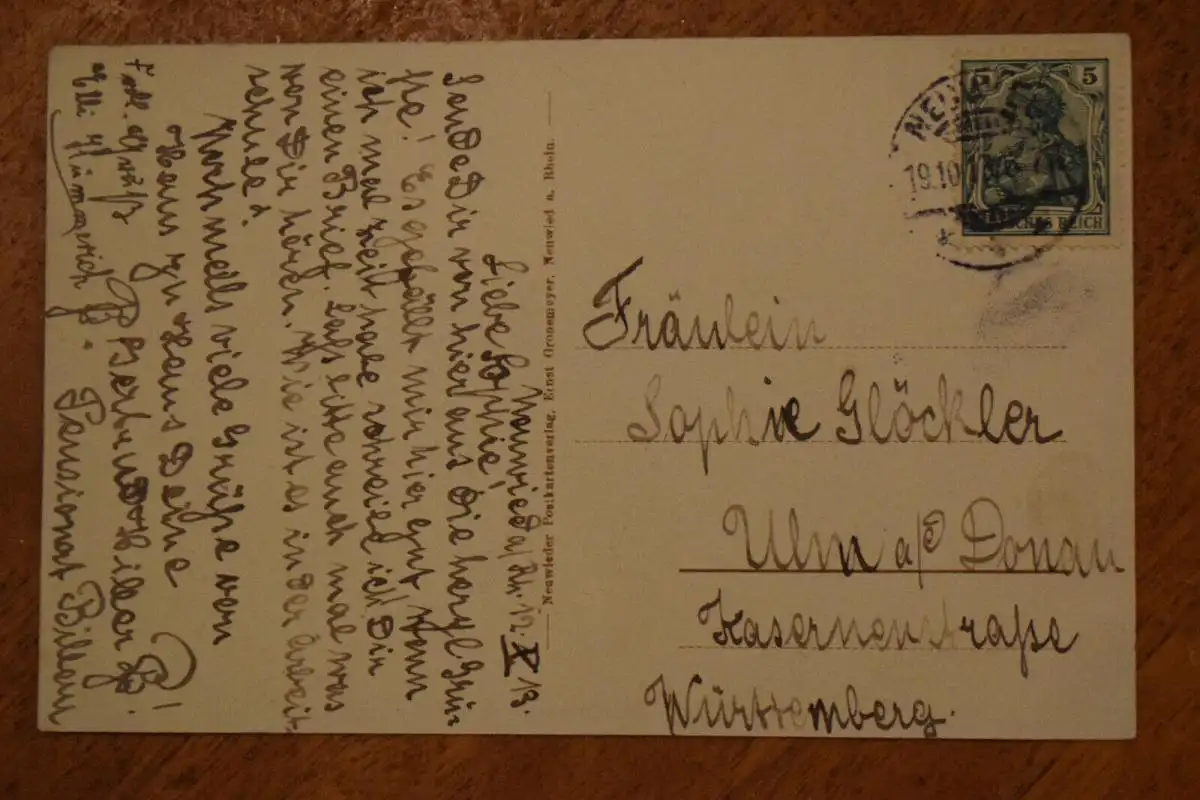 Neuwied a/Rh. 19. X 13.
Liebe Sophie!
Sende Dir von hier aus die herzl. Grü-
ße! Es gefällt mir hier gut. Wenn
ich mal Zeit habe schreib ich Dir
einen Brief. Laß bitte auch mal was
von Dir hören. Wie ist es in der Arbeit-
schule?
Nochmals viele Grüße von
Haus zu Haus Deine
Berta
Frdl. Gruß
Elli
Pensionat Billem
Neuwieder Postkartenverlag, Ernst Gronemeyer, Neuwied a. Rhein.
5
DEUTSCHES REICH
19.10
Fräulein
Sophie Glöckler
Ulm a/D Donau
Kasernenstraße
Württemberg.